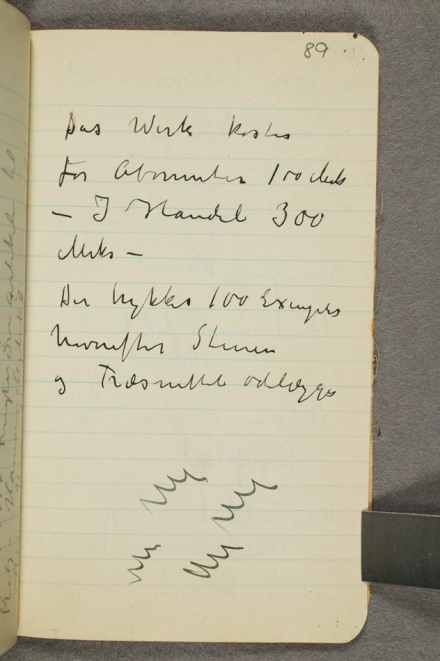 89
Das Werk kostes
For Abonnenten 100 Mks
– I Handel 300
Mks –
Der trykkes 100 Exemplrs
hvorefter Stenen
og Træsnittet ødelægges